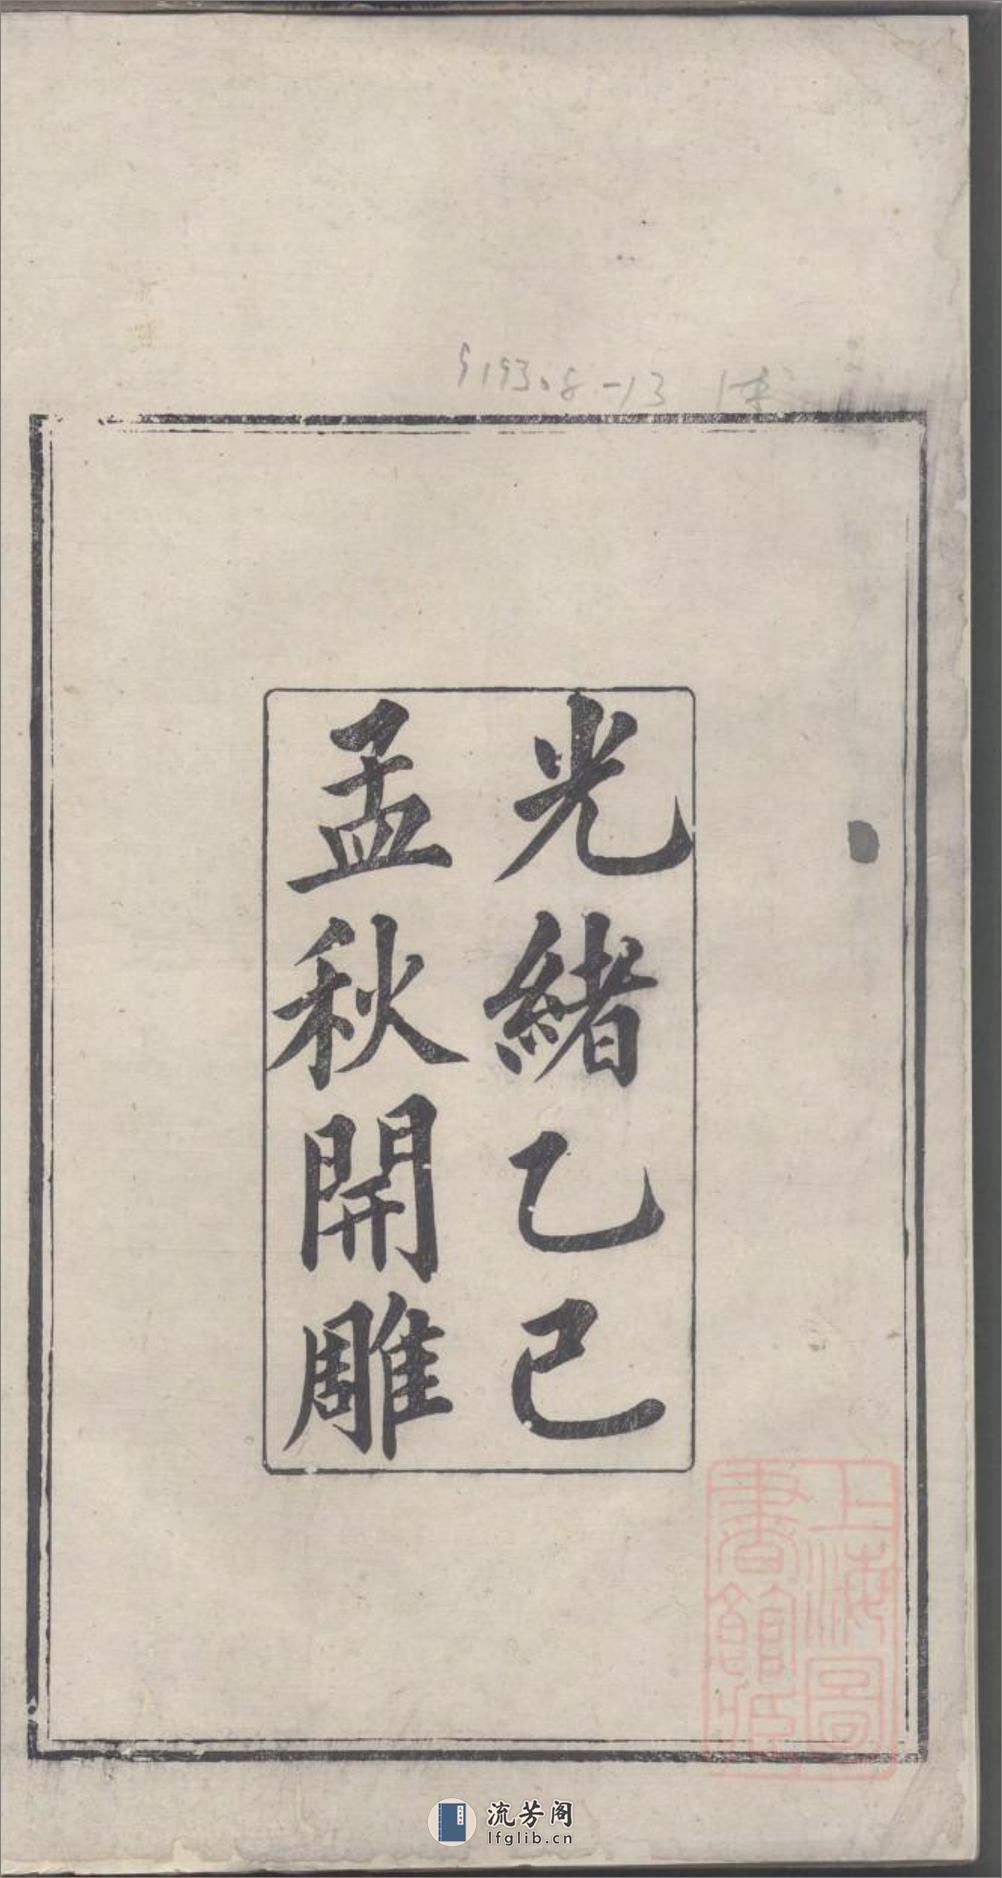 9193.8-13 1本
光緒乙巳
孟秋開雕
上海圖
書館藏
流芳阁
lfglib.cn